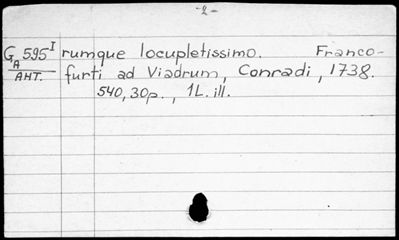 -2-
GA 595 I rumque locupletissimo. Franco-
AHT. furti ad Viadrum, Conradi, 1738.
540, 30p., 1L. ill.